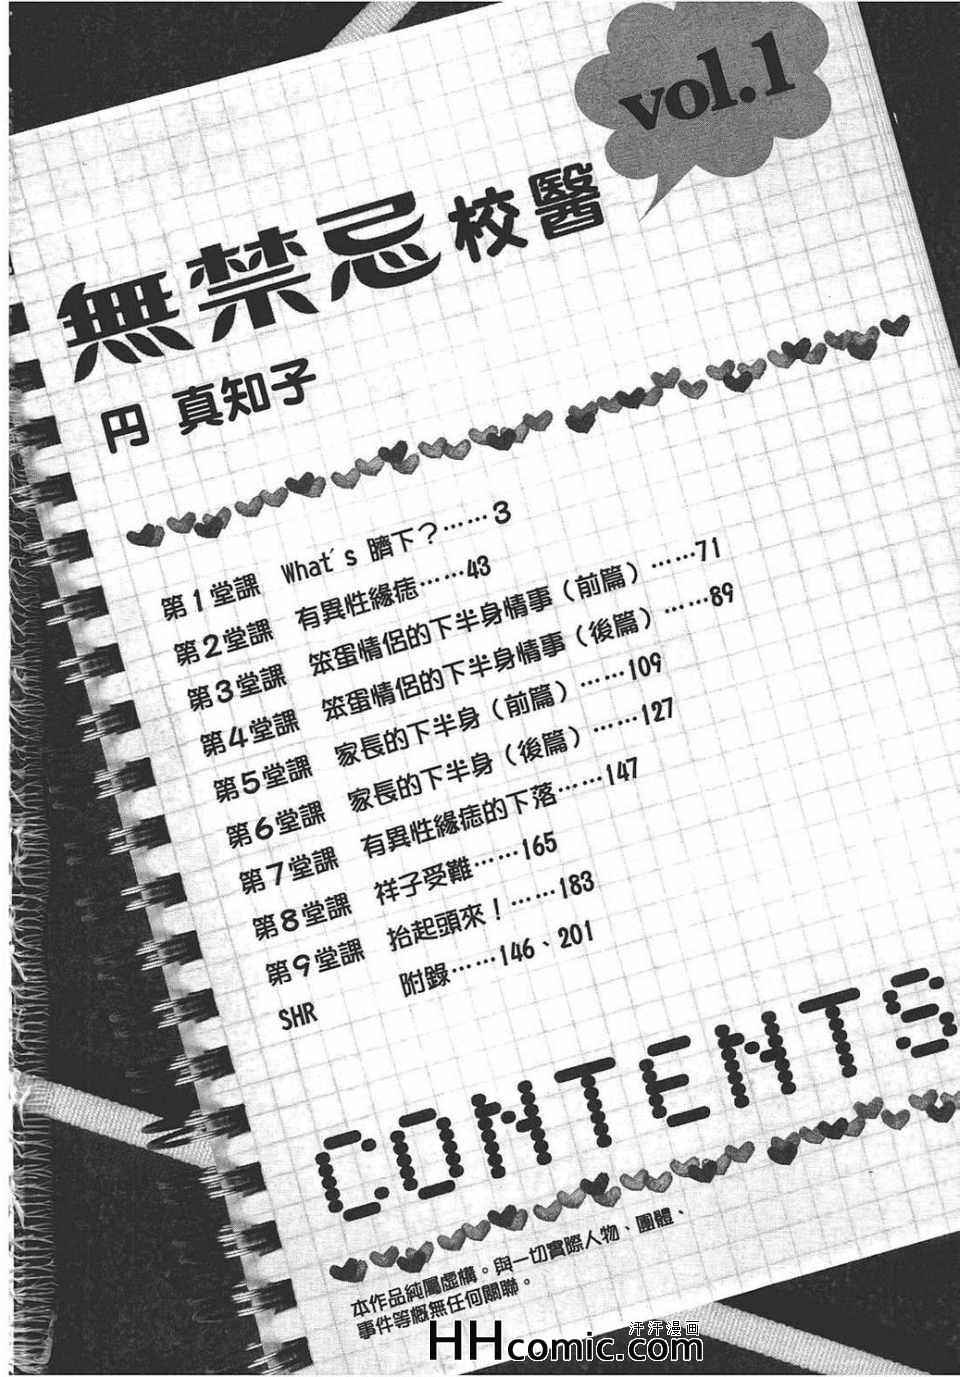 vol.1
無禁忌校醫
円 真知子
第1堂課 What's 臍下？……3
第2堂課 有異性緣痣……43
第3堂課 笨蛋情侶的下半身情事（前篇）……71
第4堂課 笨蛋情侶的下半身情事（後篇）……89
第5堂課 家長的下半身（前篇）……109
第6堂課 家長的下半身（後篇）……127
第7堂課 有異性緣痣的下落……147
第8堂課 祥子受難……165
第9堂課 抬起頭來！……183
SHR 附錄……146、201
CONTENTS
本作品純屬虛構。與一切實際人物、團體、
事件等概無任何關聯。
汗汗漫画
HHcomic.com